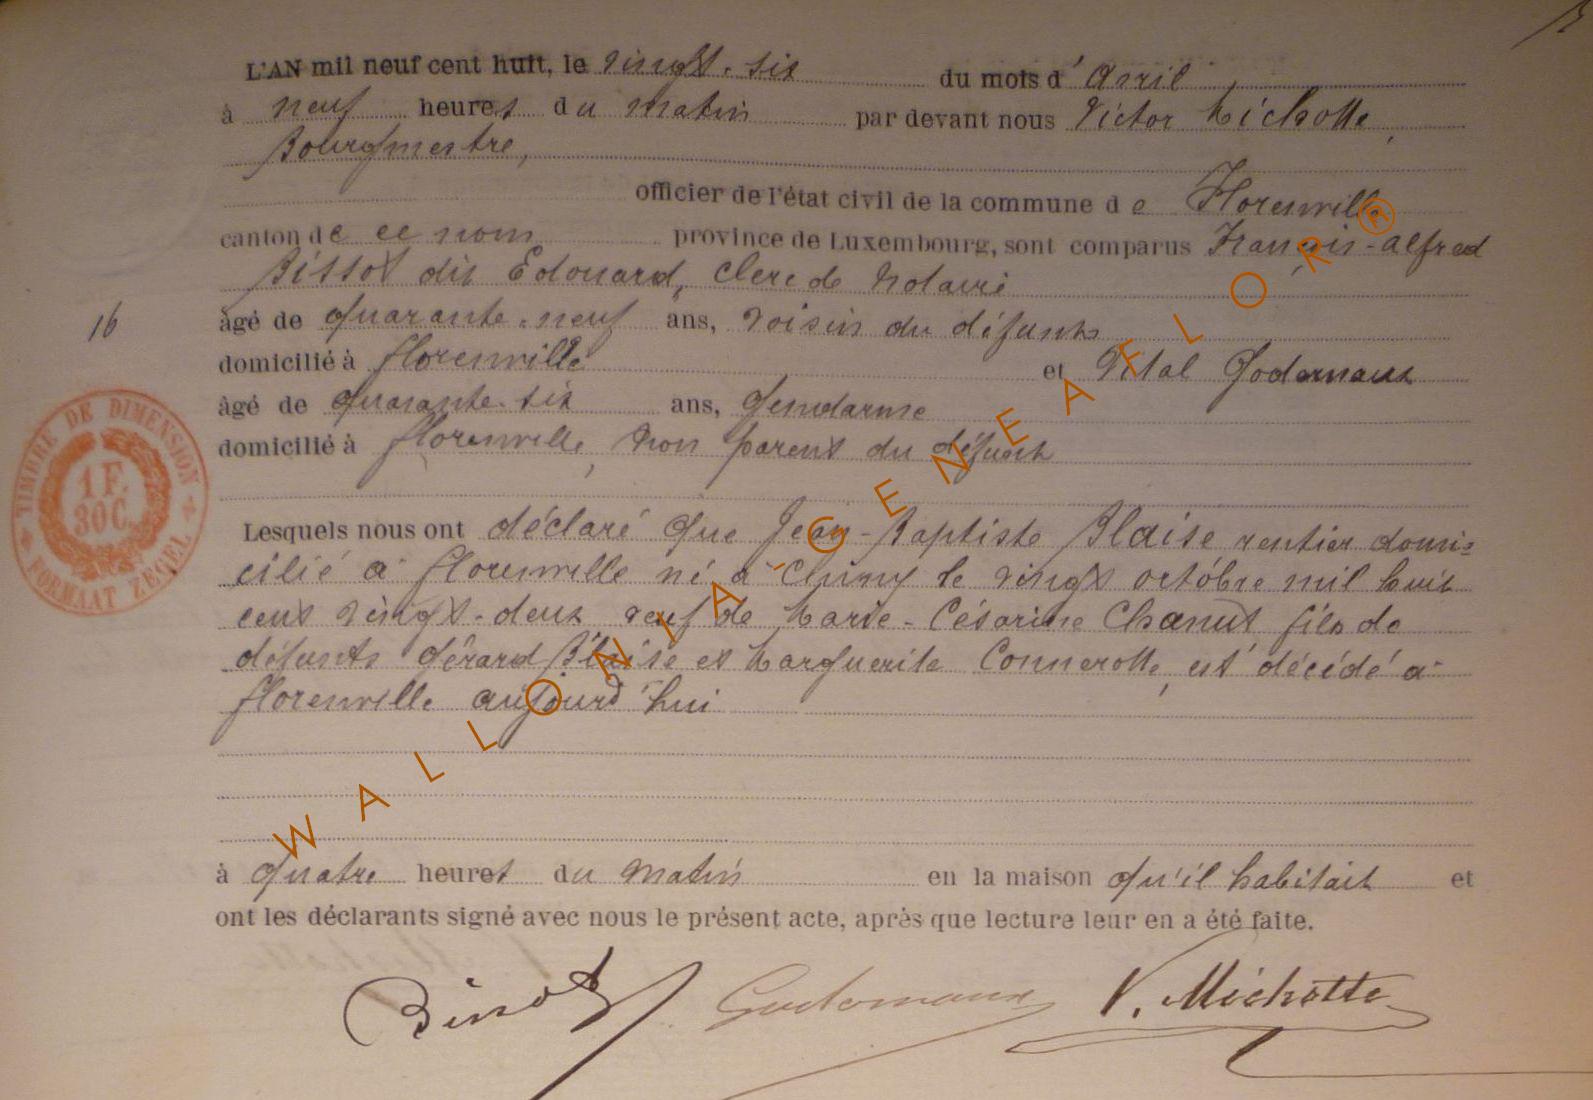 L'AN mil neuf cent huit, le vingt-six du mois d'Avril
à neuf heures du matin par devant nous Victor Michotte,
Bourgmestre,
officier de l'état civil de la commune de Florenville
canton de ce nom province de Luxembourg, sont comparus François-Alfred
Bissot dit Edouard, Clerc de Notaire
16
âgé de quarante-neuf ans, voisin du défunt
domicilié à Florenville et Vital Godernaux
âgé de quarante-six ans, Gendarme
domicilié à Florenville, non parent du défunt
TIMBRE DE DIMENSION
1 F. 30 C.
FORMAAT ZEGEL
Lesquels nous ont déclaré que Jean-Baptiste Blaise rentier domi=
cilié à Florenville né à Chiny le vingt octobre mil huit
cent vingt-deux veuf de Marie-Césarine Chanut fils de
défunts Gérard Blaise et Marguerite Connerotte, est décédé à
Florenville aujourd'hui
à quatre heures du matin en la maison qu'il habitait et
ont les déclarants signé avec nous le présent acte, après que lecture leur en a été faite.
Godernaux V. Michotte
WALLONIA-GENEAFLOR®